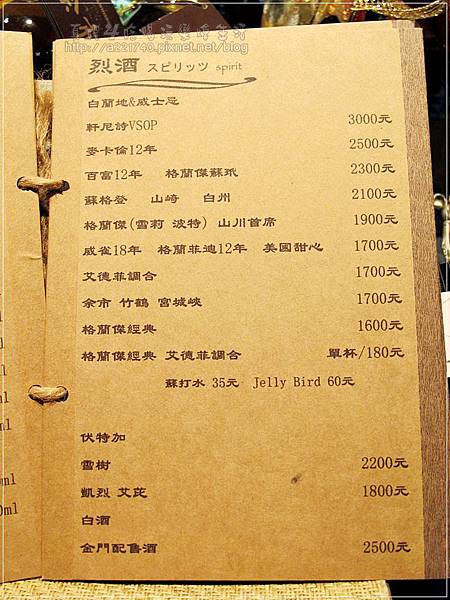 http://a221740.pixnet.net/blog
烈酒 スピリッツ spirit
白蘭地&威士忌
軒尼詩VSOP 3000元
麥卡倫12年 2500元
百富12年 格蘭傑蘇玳 2300元
蘇格登 山崎 白州 2100元
格蘭傑(雪莉 波特) 山川首席 1900元
威雀18年 格蘭菲迪12年 美國甜心 1700元
艾德菲調合 1700元
余市 竹鶴 宮城峽 1700元
格蘭傑經典 1600元
格蘭傑經典 艾德菲調合 單杯/180元
蘇打水 35元 Jelly Bird 60元
伏特加
雪樹 2200元
凱烈 艾芘 1800元
白酒
金門配售酒 2500元
ml
ml
ml
ml
ml
0ml